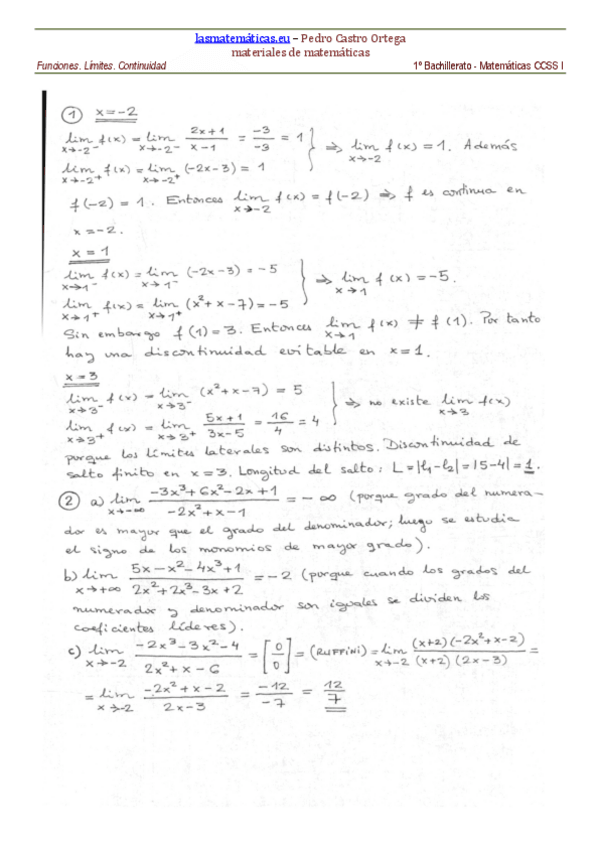 lasmatemáticas.eu – Pedro Castro Ortega
materiales de matemáticas
Funciones. Límites. Continuidad 1º Bachillerato - Matemáticas CCSS I
① x=-2
lim_{x→-2⁻} f(x) = lim_{x→-2⁻} (2x+1)/(x-1) = (-3)/(-3) = 1
lim_{x→-2⁺} f(x) = lim_{x→-2⁺} (-2x-3) = 1 } ⇒ lim_{x→-2} f(x) = 1. Además
f(-2) = 1. Entonces lim_{x→-2} f(x) = f(-2) ⇒ f es continua en
x=-2.
x = 1
lim_{x→1⁻} f(x) = lim_{x→1⁻} (-2x-3) = -5
lim_{x→1⁺} f(x) = lim_{x→1⁺} (x²+x-7) = -5 } ⇒ lim_{x→1} f(x) = -5.
Sin embargo f(1)=3. Entonces lim_{x→1} f(x) ≠ f(1). Por tanto
hay una discontinuidad evitable en x=1.
x = 3
lim_{x→3⁻} f(x) = lim_{x→3⁻} (x²+x-7) = 5
lim_{x→3⁺} f(x) = lim_{x→3⁺} (5x+1)/(3x-5) = 16/4 = 4 } ⇒ no existe lim_{x→3} f(x)
porque los límites laterales son distintos. Discontinuidad de
salto finito en x=3. Longitud del salto: L=|l₁-l₂|=|5-4|=1.
② a) lim_{x→-∞} (-3x³+6x²-2x+1)/(-2x²+x-1) = -∞ (porque grado del numera-
dor es mayor que el grado del denominador; luego se estudia
el signo de los monomios de mayor grado).
b) lim_{x→+∞} (5x-x²-4x³+1)/(2x²+2x³-3x+2) = -2 (porque cuando los grados del
numerador y denominador son iguales se dividen los
coeficientes líderes).
c) lim_{x→-2} (-2x³-3x²-4)/(2x²+x-6) = [0/0] = (RUFFINI) = lim_{x→-2} (x+2)(-2x²+x-2)/(x+2)(2x-3) =
= lim_{x→-2} (-2x²+x-2)/(2x-3) = (-12)/(-7) = 12/7